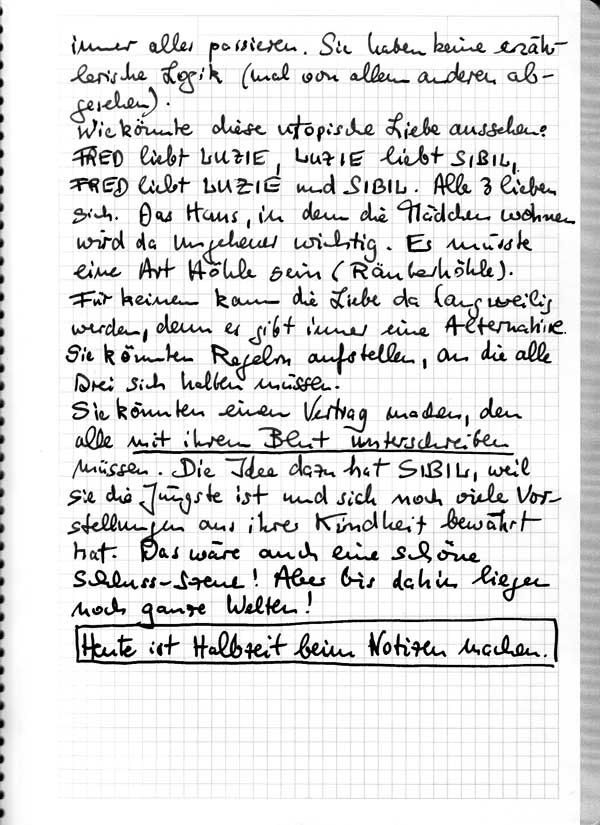 immer alles passieren. Sie haben keine erzäh-
lerische Logik (mal von allem anderen ab-
gesehen).
Wie könnte diese utopische Liebe aussehen?
FRED liebt LUZIE, LUZIE liebt SIBIL,
FRED liebt LUZIE und SIBIL. Alle 3 lieben
sich. Das Haus, in dem die Mädchen wohnen
wird da ungeheuer wichtig. Es müsste
eine Art Höhle sein (Räuberhöhle).
Für keinen kann die Liebe da langweilig
werden, denn es gibt immer eine Alternative.
Sie könnten Regeln aufstellen, an die alle
Drei sich halten müssen.
Sie könnten einen Vertrag machen, den
alle mit ihrem Blut unterschreiben
müssen. Die Idee dazu hat SIBIL, weil
sie die Jüngste ist und sich noch viele Vor-
stellungen aus ihrer Kindheit bewahrt
hat. Das wäre auch eine schöne
Schluss-Szene! Aber bis dahin liegen
noch ganze Welten!
Heute ist Halbzeit beim Notizen machen.